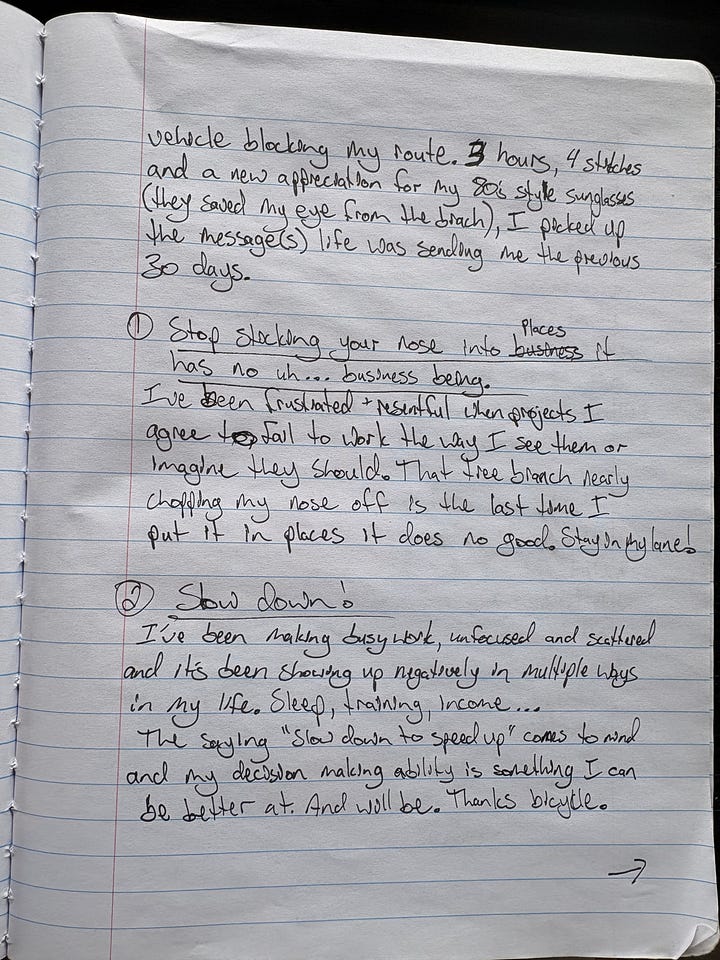 vehicle blocking my route. 3 hours, 4 stitches
and a new appreciation for my 80's style sunglasses
(they saved my eye from the brach), I picked up
the message(s) life was sending me the previous
30 days.
① Stop sticking your nose into places business it
has no uh... business being.
I've been frustrated + resentful when projects I
agree to fail to work the way I see them or
imagine they should. That tree branch nearly
chopping my nose off is the last time I
put it in places it does no good. Stay in my lane!
② Slow down!
I've been making busy work, unfocused and scattered
and it's been showing up negatively in multiple ways
in my life. Sleep, training, income...
The saying "Slow down to speed up" comes to mind
and my decision making ability is something I can
be better at. And will be. Thanks bicycle.
→